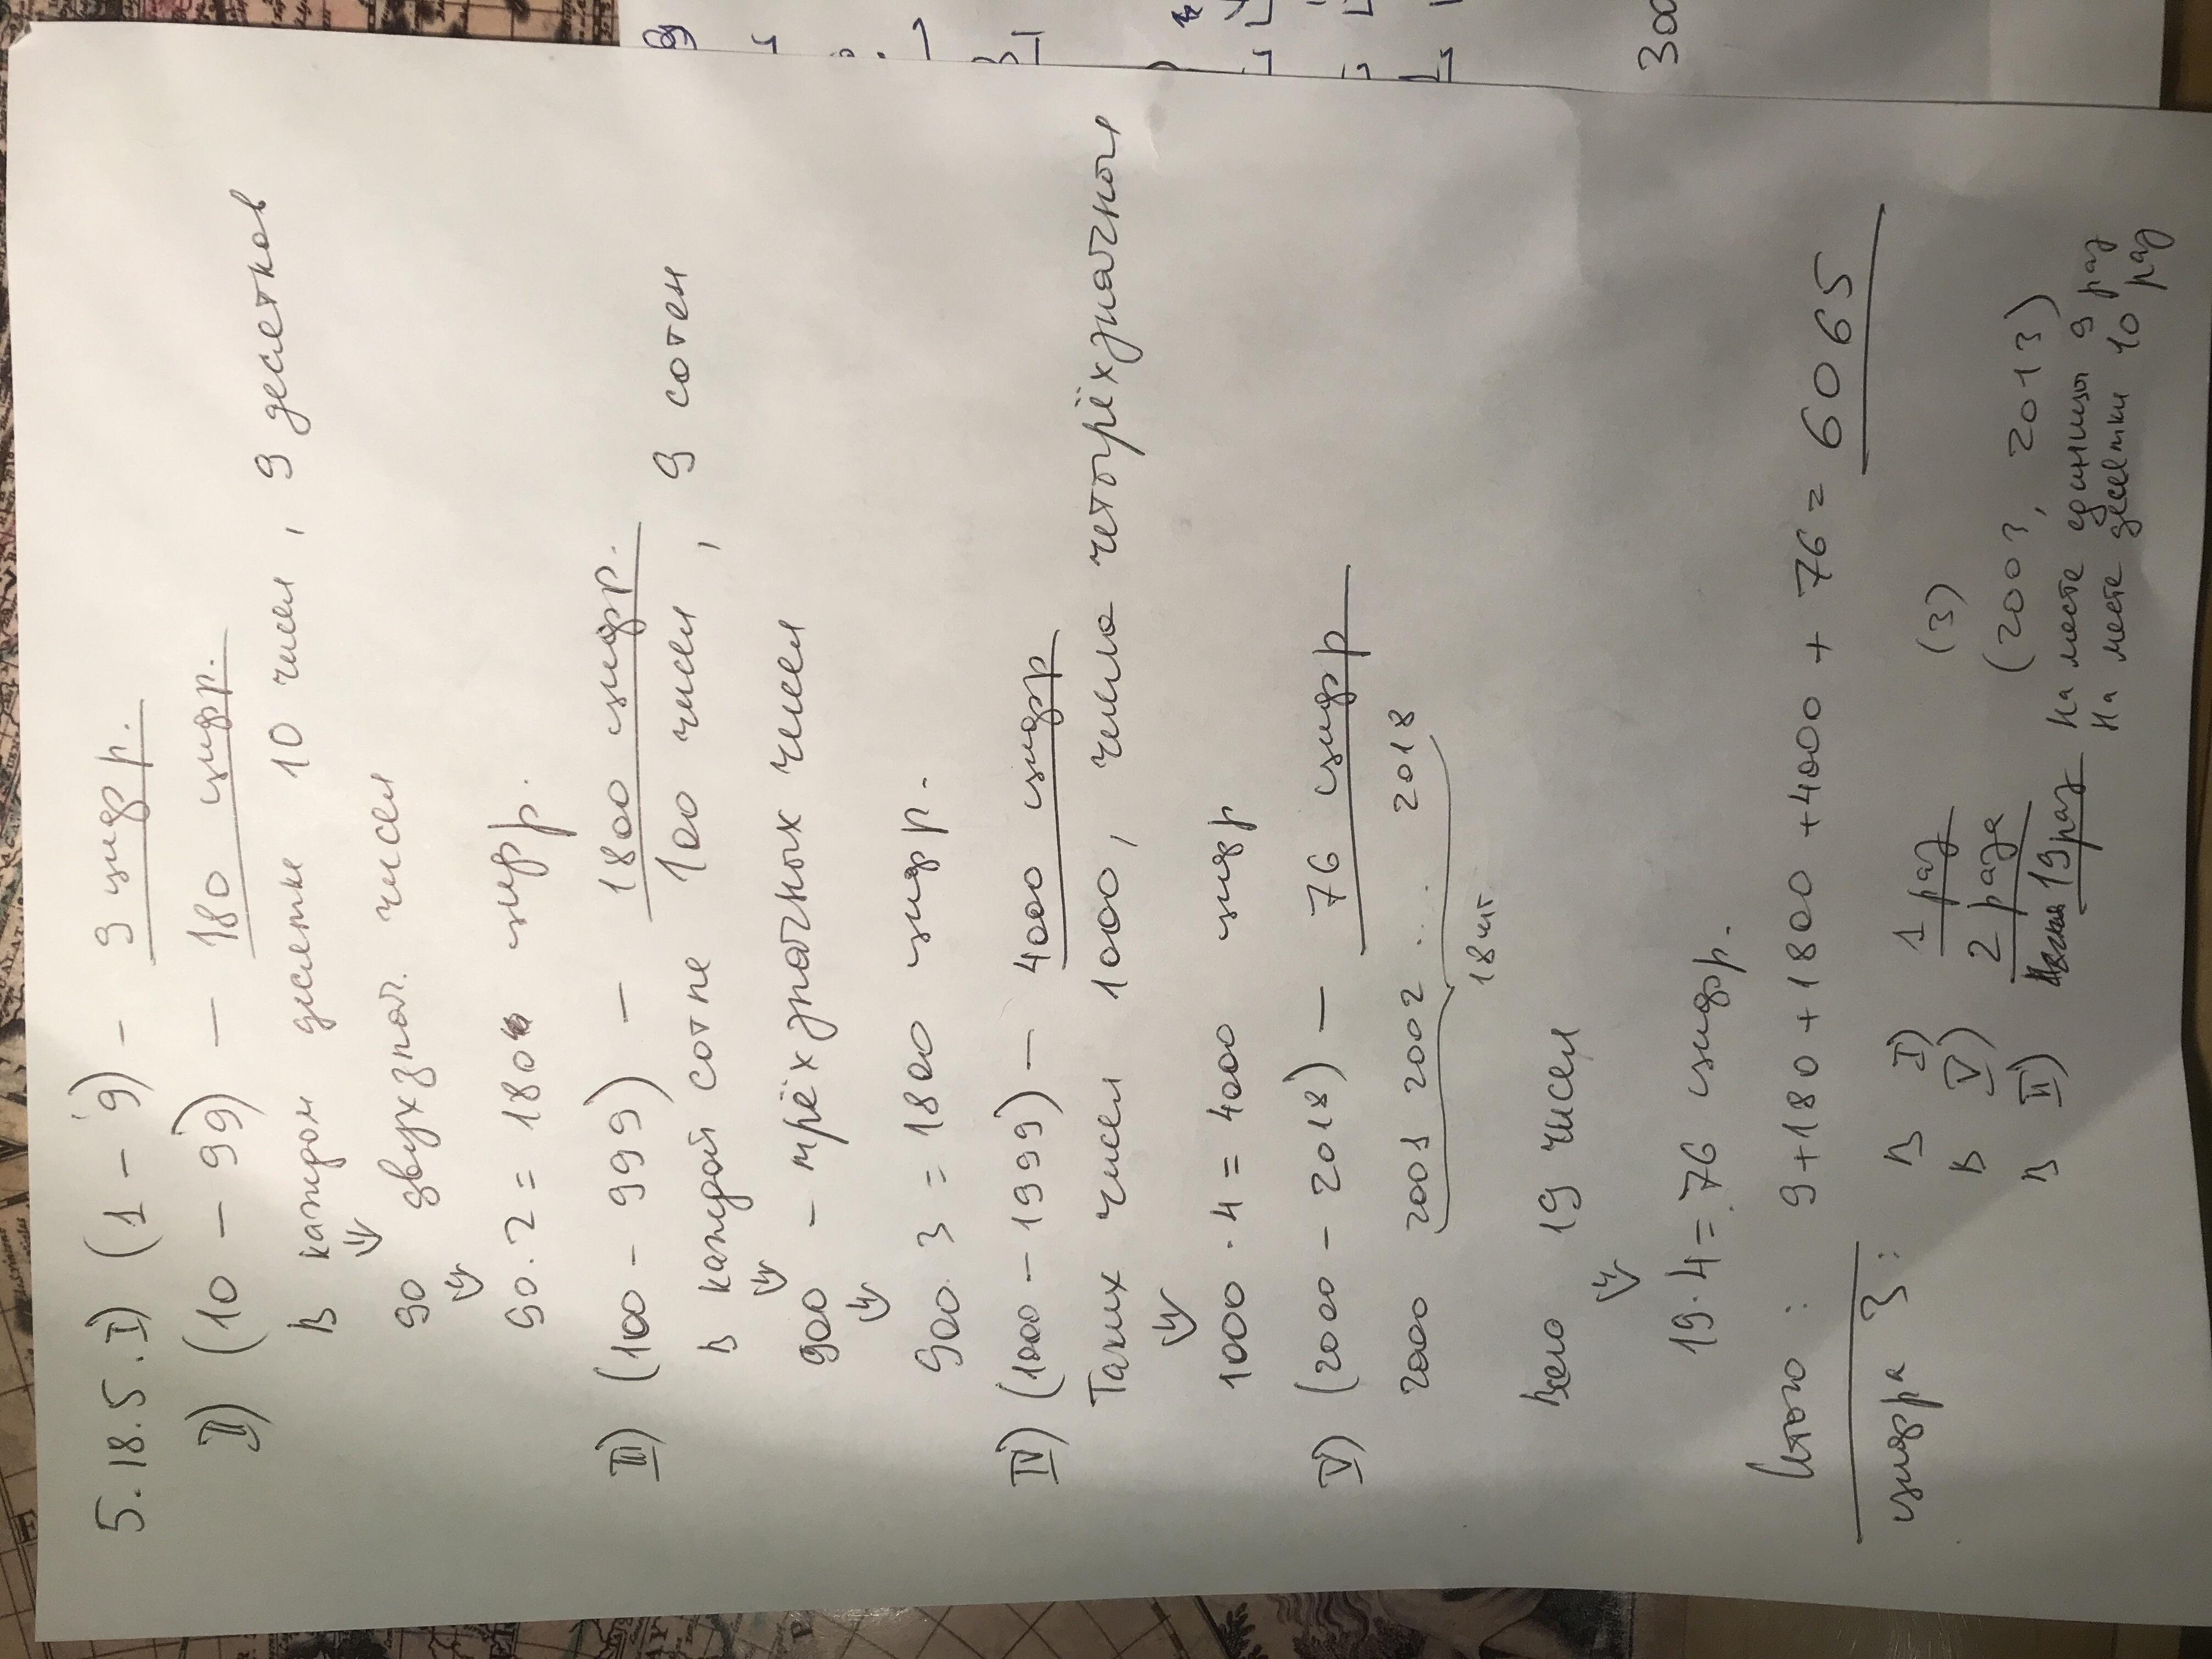 5.18.5. I) (1 - 9) - 9 цифр.
II) (10 - 99) - 180 цифр.
В каждом десятке 10 чисел, 9 десятков
⇓
90 двухзнач. чисел
⇓
90 · 2 = 180 цифр.
III) (100 - 999) - 1800 цифр.
В каждой сотне 100 чисел, 9 сотен
⇓
900 - трёхзначных чисел
⇓
900 · 3 = 1800 цифр.
IV) (1000 - 1999) - 4000 цифр
Таких чисел 1000, числа четырёхзначные
⇓
1000 · 4 = 4000 цифр
V) (2000 - 2018) - 76 цифр
2000 2001 2002 ..... 2018
18 шт.
Всего 19 чисел
⇓
19 · 4 = 76 цифр.
Итого: 9 + 180 + 1800 + 4000 + 76 = 6065
цифра 3:
В I) 1 раз (3)
В V) 2 раза (2003, 2013)
В II) 19 раз На месте единицы 9 раз
На месте десятки 10 раз
300